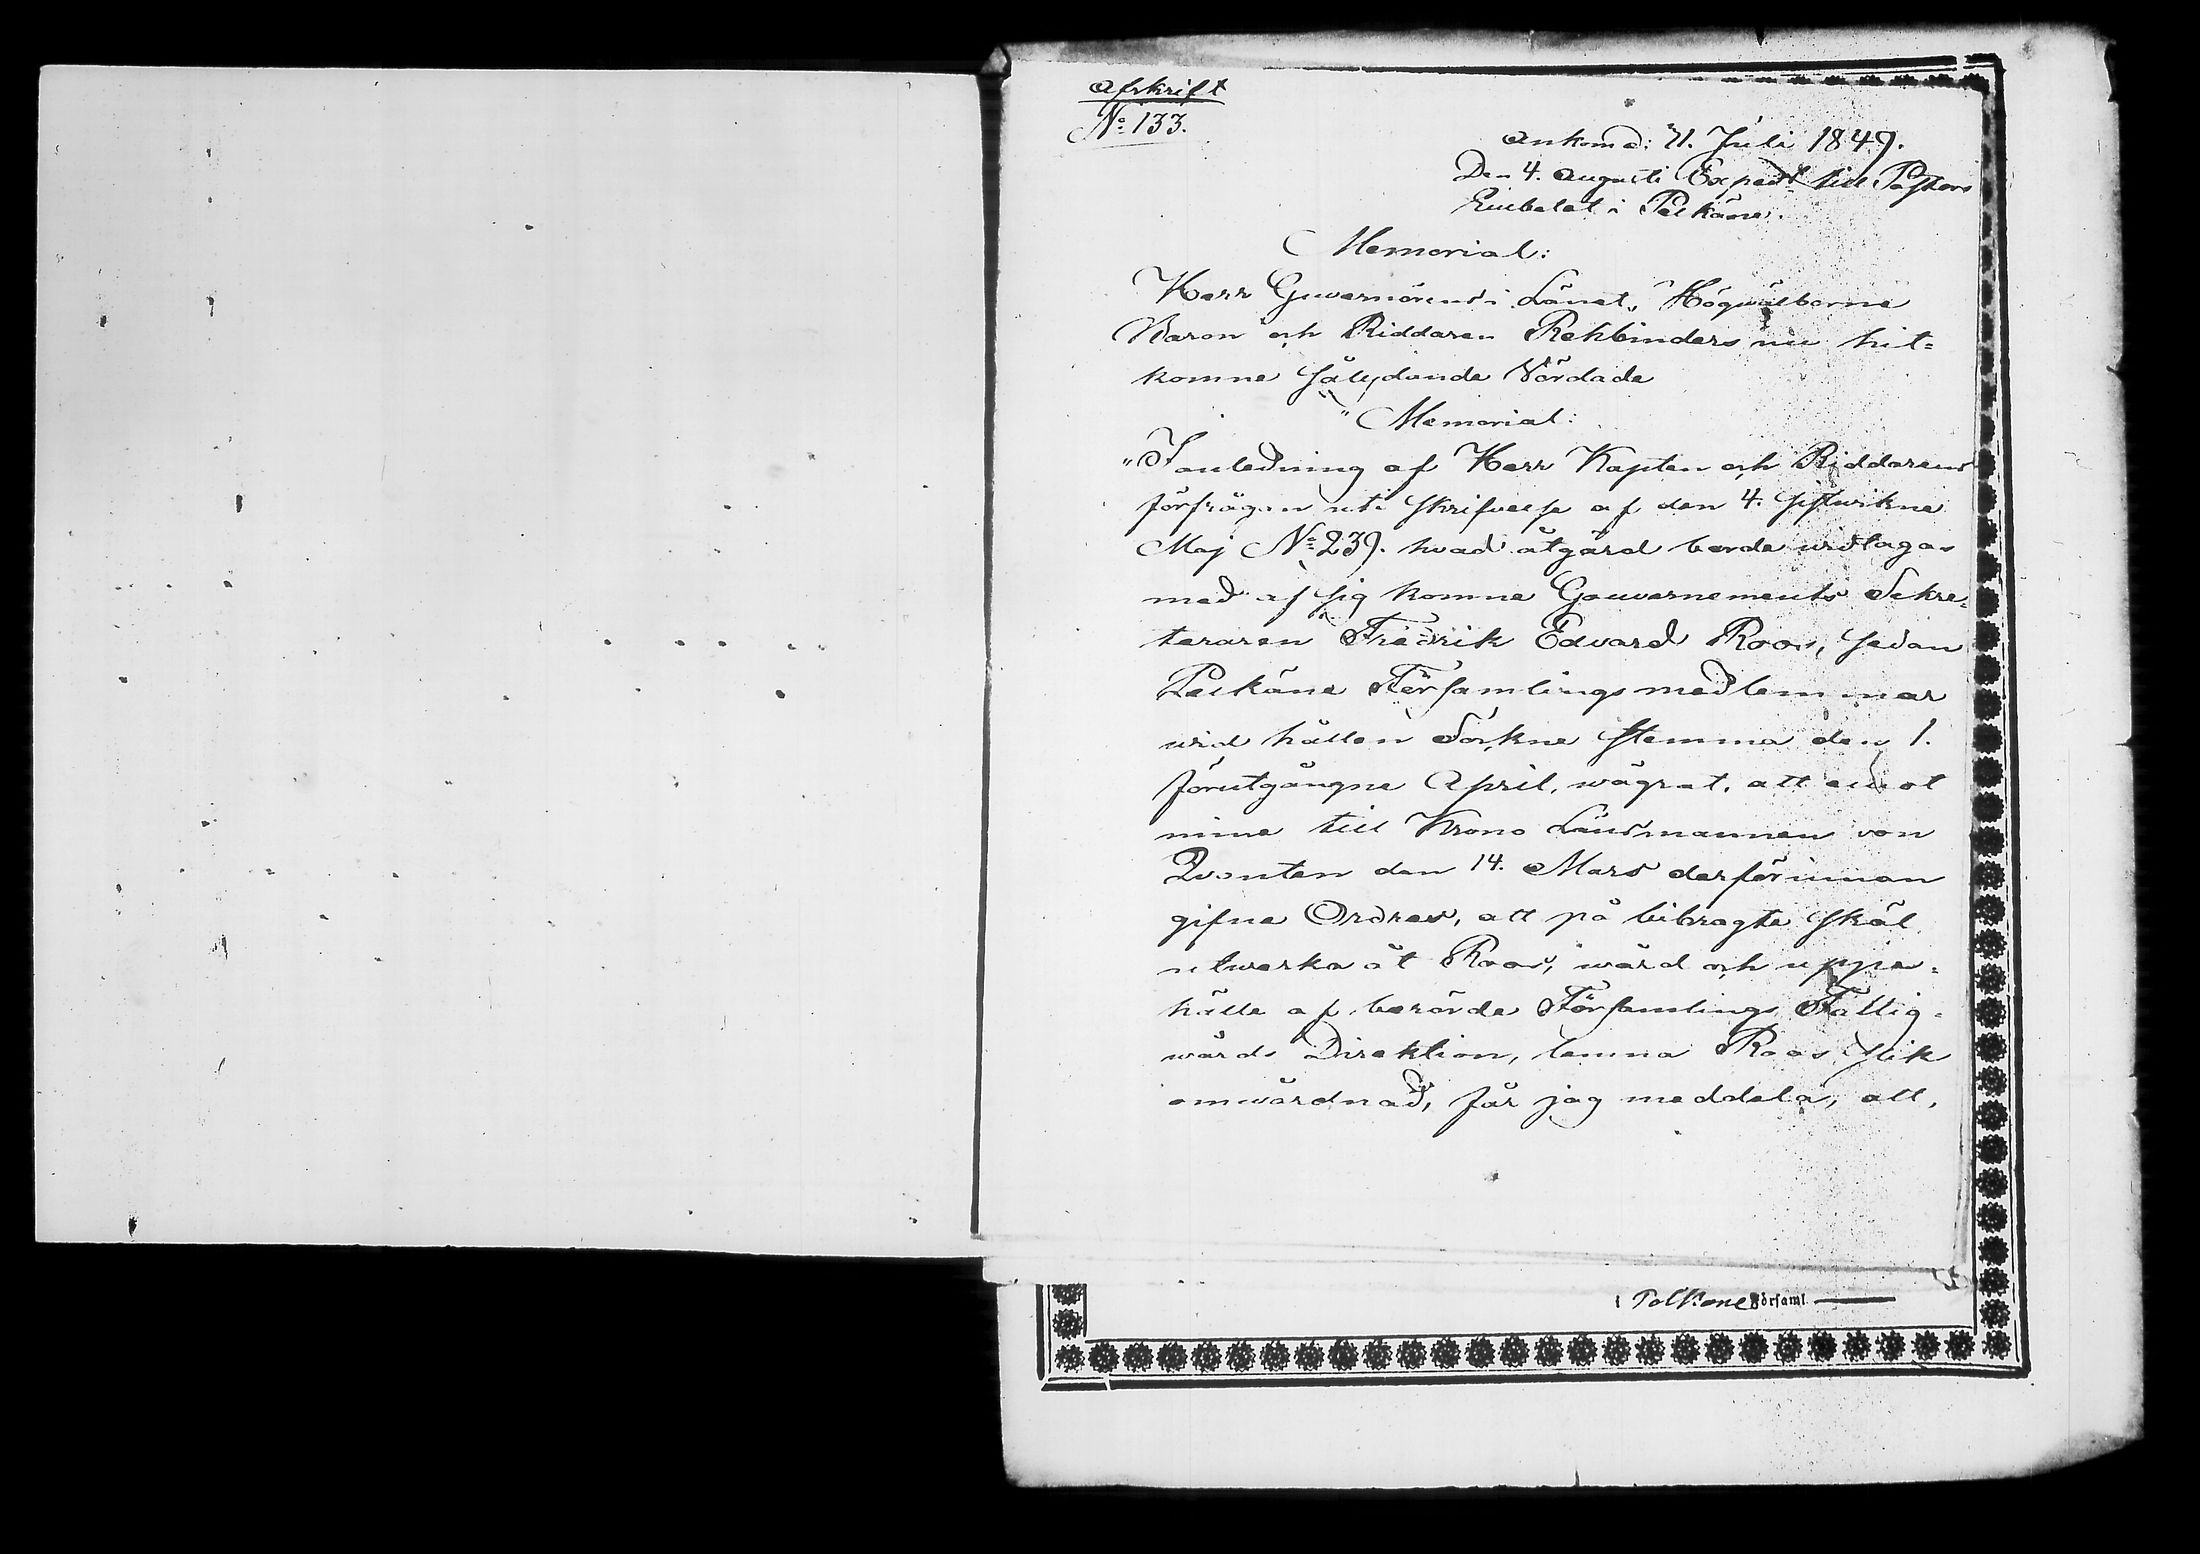 Afskrift
No: 133.
Ankom d: 31. Juli 1849.
Den 4. Augusti Exped.t till Pastors
Embetet i Pelkäne.
Memorial:
Herr Guvernörens i Länet, Högwälborne
Baron och Riddaren Rehbinders nu hit=
komne sålydande Vördade
"Memorial:
"I anledning af Herr Kapten och Riddarens
förfrågan uti skrifvelse af den 4. sistwikne
Maj No: 239. hvad åtgärd borde widtagas
med af sig komne Gouvernements Sekre=
teraren Fredrik Edvard Roos, sedan
Pelkäne Församlings medlemmar
wid hållen Sockne stemma den 1.
förutgångne April, wägrat, att emot
mine till Krono Länsmannen von
Qvanten den 14. Mars derförinnan
gifne Ordres, att på bibragte skäl
utwerka åt Roos, wård och uppe=
hälle af berörde Församlings Fattig=
wårds Direktion, lemna Roos slik
omwårdnad, får jag meddela, att,
i Pelkäne Församl.